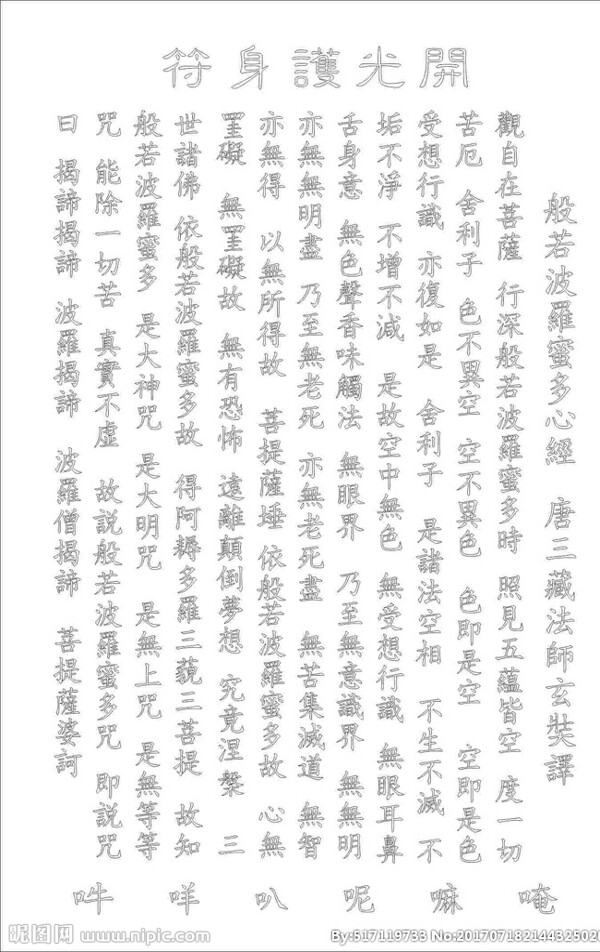 開光護身符
般若波羅蜜多心經 唐三藏法師玄奘譯
觀自在菩薩 行深般若波羅蜜多時 照見五蘊皆空 度一切
苦厄 舍利子 色不異空 空不異色 色即是空 空即是色
受想行識 亦復如是 舍利子 是諸法空相 不生不滅 不
垢不淨 不增不減 是故空中無色 無受想行識 無眼耳鼻
舌身意 無色聲香味觸法 無眼界 乃至無意識界 無無明
亦無無明盡 乃至無老死 亦無老死盡 無苦集滅道 無智
亦無得 以無所得故 菩提薩埵 依般若波羅蜜多故 心無
罣礙 無罣礙故 無有恐怖 遠離顛倒夢想 究竟涅槃 三
世諸佛 依般若波羅蜜多故 得阿耨多羅三藐三菩提 故知
般若波羅蜜多 是大神咒 是大明咒 是無上咒 是無等等
咒 能除一切苦 真實不虛 故說般若波羅蜜多咒 即說咒
曰 揭諦揭諦 波羅揭諦 波羅僧揭諦 菩提薩婆訶
唵 嘛 呢 叭 咩 吽
昵图网 www.nipic.com
By:517119733 No:20170718214432502